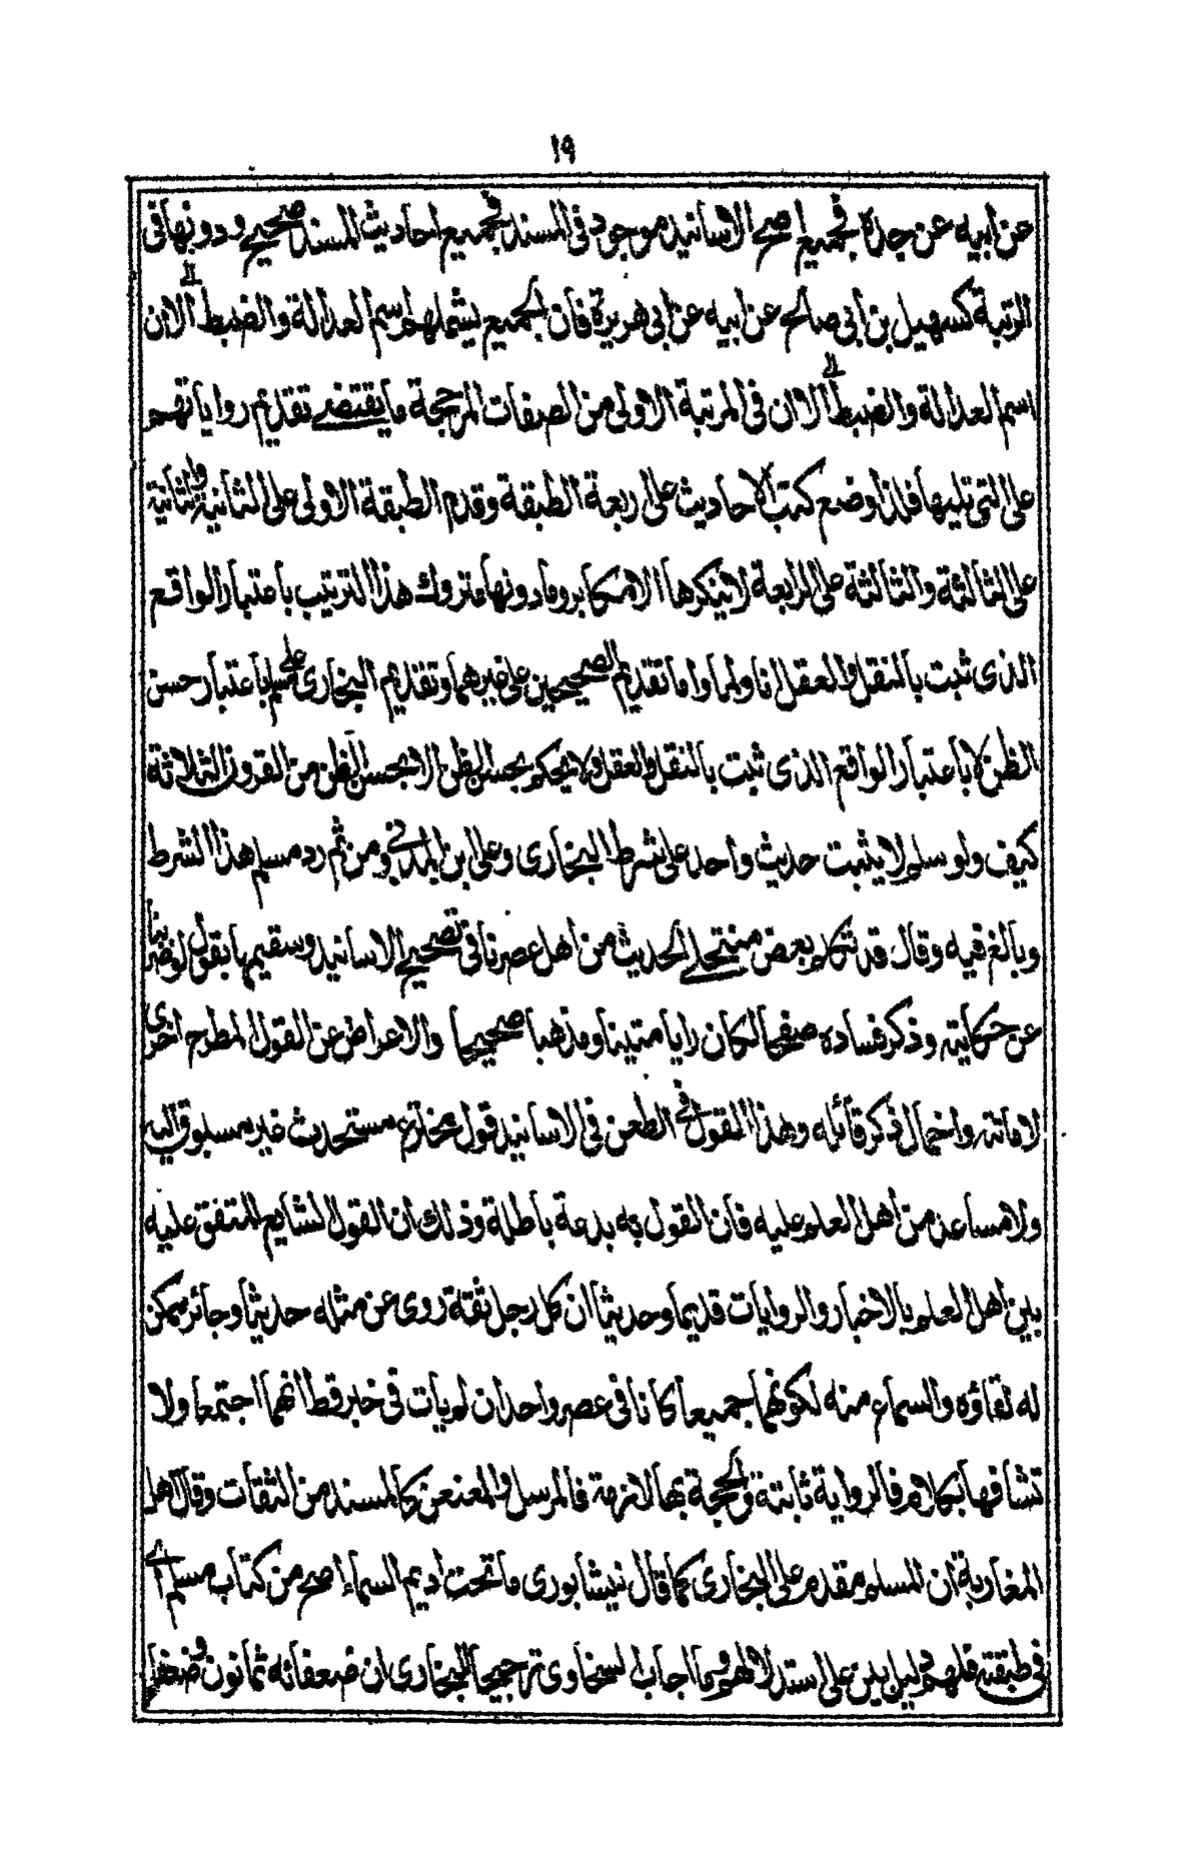 ١٩
عن ابيه عن جده فجميع اصح الاسانيد موجود فى المسند فجميع احاديث المسند صحيح ودونها فى
الرتبة كسهيل بن ابى صالح عن ابيه عن ابى هريرة فان الجميع يشملهم اسم العدالة والضبط الا ان
اسم العدالة والضبط الا ان فى المرتبة الاولى من الصفات المرجحة ما يقتضى تقديم رواياتهم
على التى تليها فلذا وضع كتب الاحاديث على اربعة الطبقة وقدم الطبقة الاولى على الثانية والثانية
على الثالثة والثالثة على الرابعة لا ينكرها الا مكابر وما دونها متروك هذا الترتيب باعتبار الواقع
الذى ثبت بالنقل والعقل انا ولما واما تقديم الصحيحين على غيرهما وتقديم البخارى على مسلم باعتبار حسن
الظن لا باعتبار الواقع الذى ثبت بالنقل والعقل ولا يحكم بحسن الظن الا بحسن الظن من القرون الثلاثة
كيف ولو سلم لا يثبت حديث واحد على شرط البخارى وعلى ابن المدينى ومن ثم رد مسلم هذا الشرط
وبالغ فيه وقال قد تكلم بعض منتحلى الحديث من اهل عصرنا فى تصحيح الاسانيد وسقيمها بقول لو ضربنا
عن حكايته وذكر فساده صفحا لكان رايا متينا ومذهبا صحيحا والاعراض عن القول المطرح احرى
لاماتته واخمال ذكر قائله وهذا القول فى الطعن فى الاسانيد قول مخترع مستحدث غير مسبوق اليه
ولا مساعد من اهل العلم عليه فان القول به بدعة باطلة وذلك ان القول الشايع المتفق عليه
بين اهل العلم بالاخبار والروايات قديما وحديثا ان كل رجل ثقة روى عن مثله حديثا وجائز ممكن
له لقاؤه والسماع منه لكونهما جميعا كانا فى عصر واحد ان لم يات فى خبر قط انهما اجتمعا ولا
تشافها بكلام فالرواية ثابتة والحجة بها لازمة فالمرسل والمعنعن كالمسند من الثقات وقال اهل
المغاربة ان المسلم مقدم على البخارى كما قال نيشابورى ما تحت اديم السماء اصح من كتاب مسلم اى
فى طبقته فلهم دليل بين على استدلالهم وما اجاب السخاوى ترجيحا للبخارى ان ضعفائه ثمانون وضعفاء